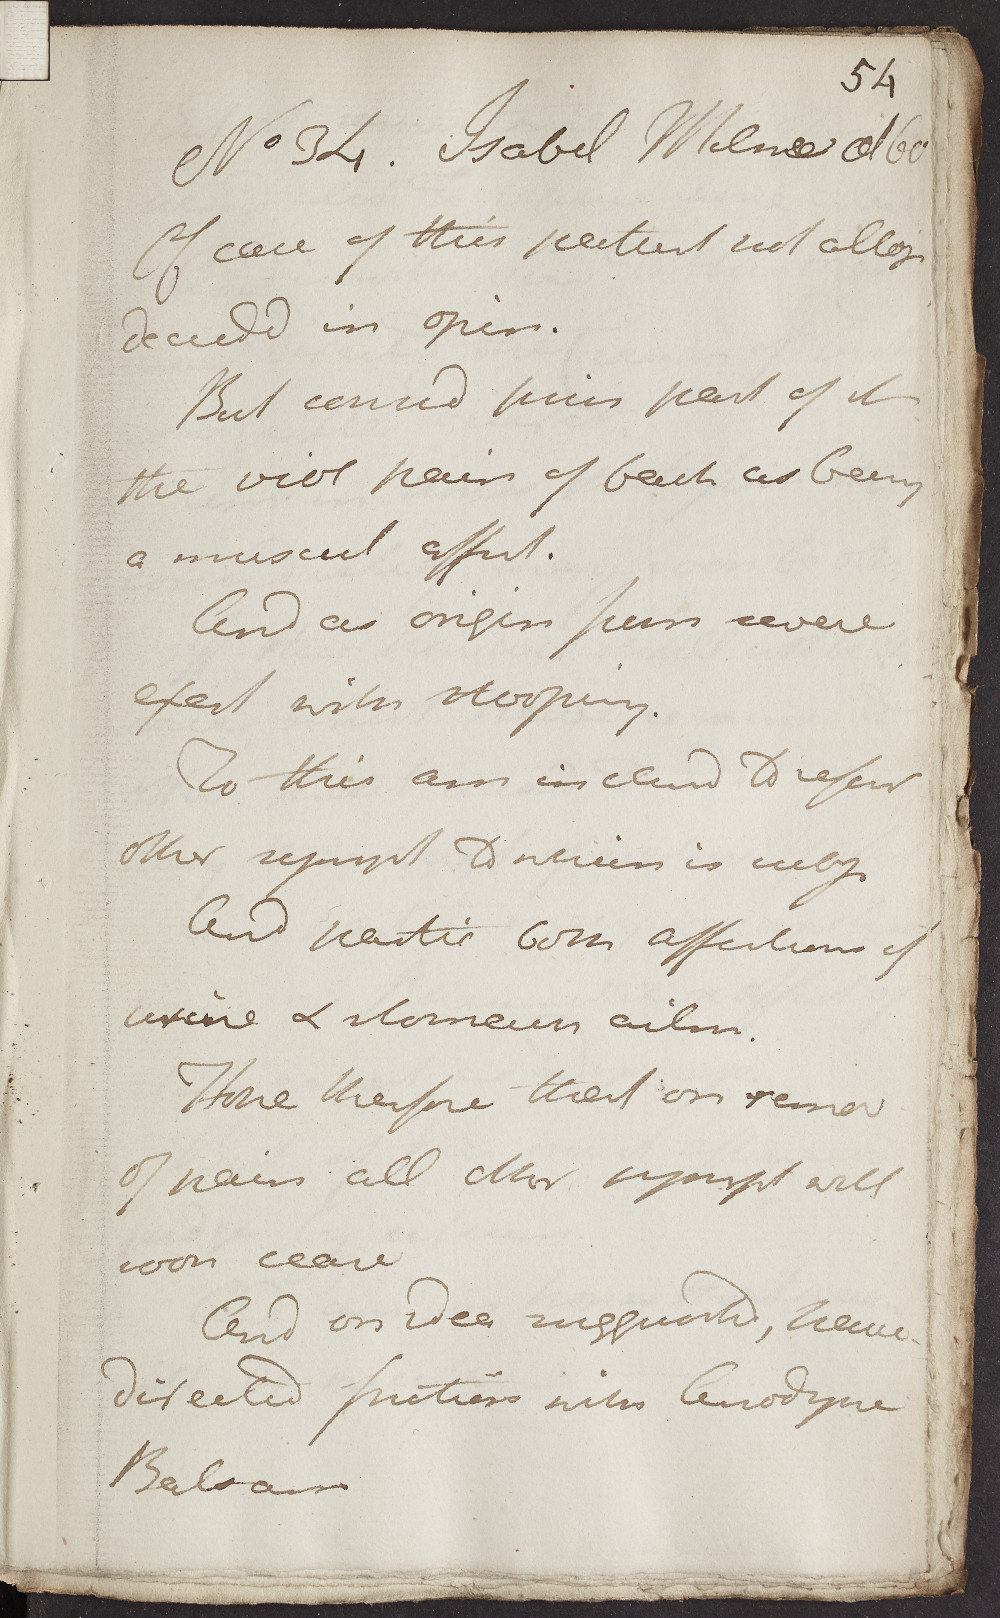 54
No 34. Isabel Milne æt 60
Of case of this patient not altog
decided in opin.
But consid princ part of it
the viol pain of back as being
a muscul affect.
And as origin from severe
exert with stooping.
To this am inclind to refer
other sympt to which is subj
And partic both affections of
urine & stomach ailm.
Hope therefore that on remov
of pain all other sympt will
soon cease
And on idea suggested, have
directed friction with Anodyne
Balsam